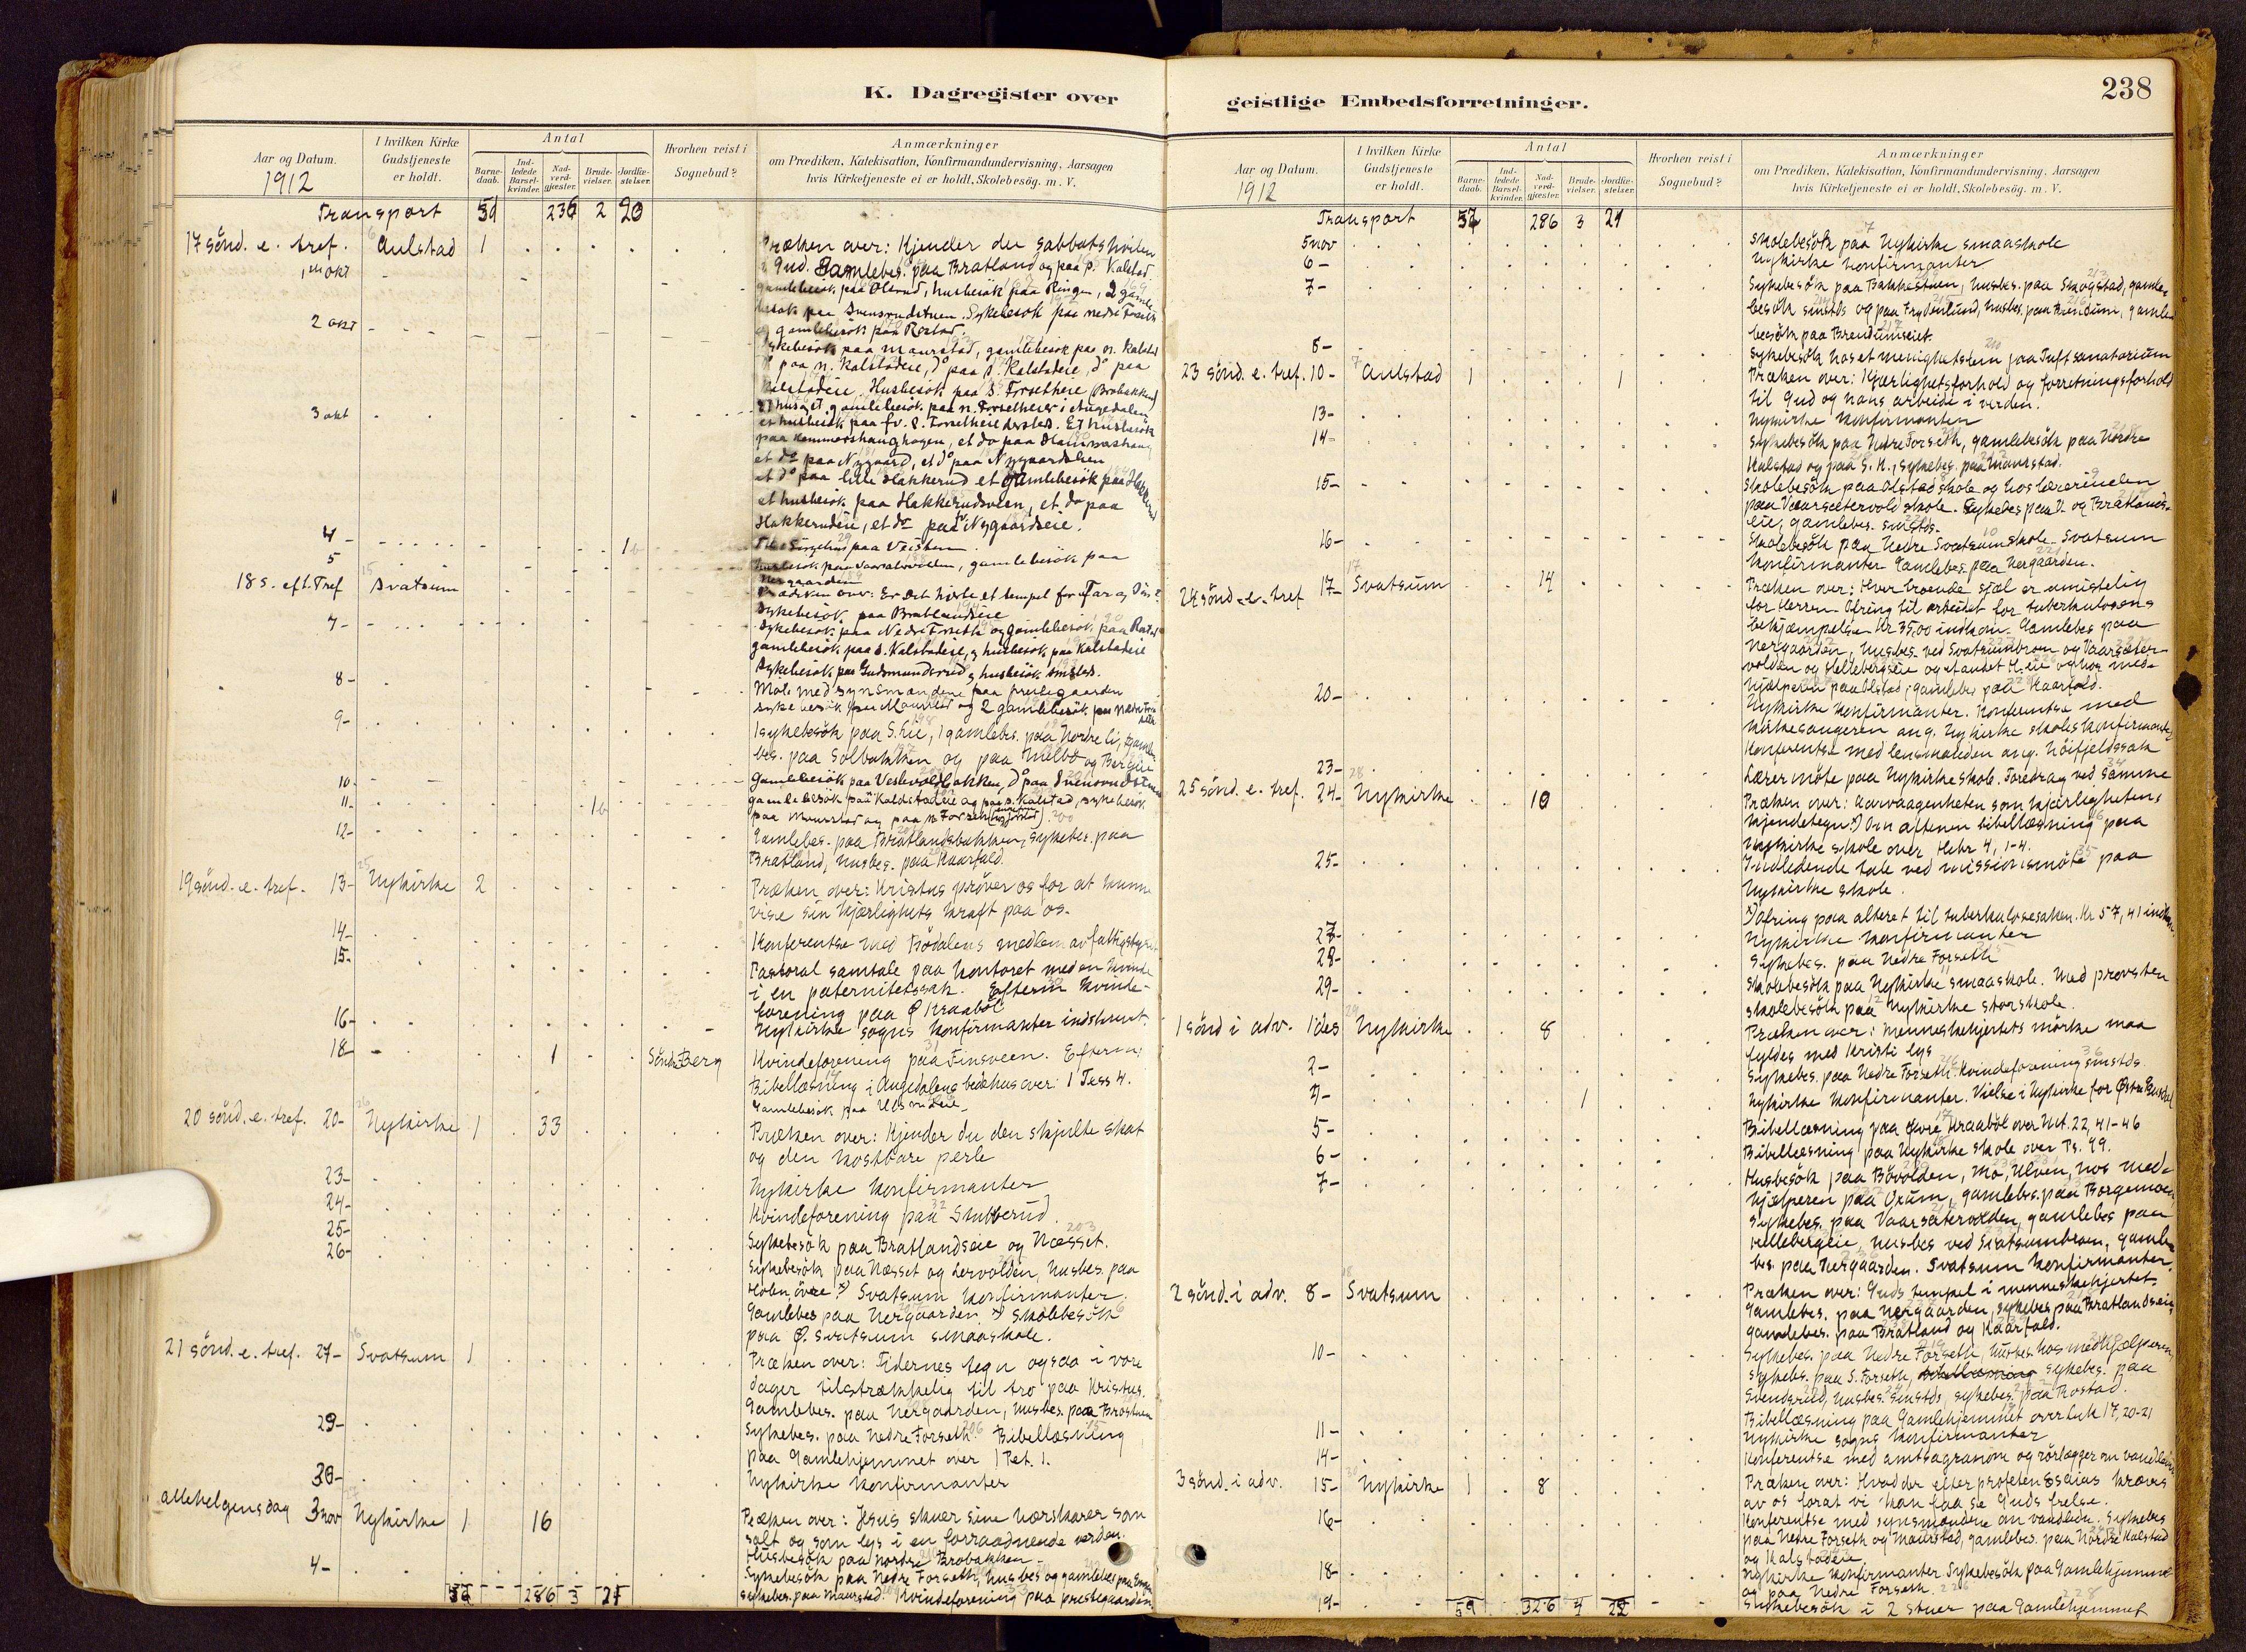 K. Dagregister over
Aar og Datum.
1912
I hvilken Kirke
Gudstjeneste
er holdt.
Antal
Barne-
daab.
Ind-
ledede
Barsel-
kvinder.
Nad-
verd-
gjester.
Brude-
vielser.
Jordfæ-
stelser.
Hvorhen reist i
Sognebud?
Anmærkninger
om Prædiken, Katekisation, Konfirmandundervisning, Aarsagen
hvis Kirketjeneste ei er holdt, Skolebesög. m. V.
Transport 51 236 2 20
17 sönd. e. tref. Aulstad 1 Præken over: Kjender du sabbatshvilen
i Gud. Gamlebes. paa Bratland og paa s. Kalstad
1 okt gamlebesök paa Olsrud, husbesök paa Ringen, 2 gamle
besök paa Svensrudstuen. Sykebesök paa nedre Forseth
2 okt og gamlebesök paa Rostad.
Sykebesök paa Maurstad, gamlebesök paa n. Kalstad
do paa n. Kalstadeie, do paa s. Kalstadeie, do paa
Kalstadeie. Husbesök paa S. Forsetheie (Brobakken)
3 okt
paa Hammershaughagen, et do paa Hammershaug
et do paa Nygaard, et do paa Nygaardshen
et do paa lille Hakkerud et gamlebesök paa Hakkerud
et husbesök paa Hakkerudsveen, et do paa
Hakkerudeie, et do paa Nygaardseie.
4 - 1
5 gamlebesök paa
Nergaarden
18 s. eft. Tref Svatsum Prædiken over: Er dit hjerte et tempel for
Sykebesök paa Bratlandseie
7 - Sykebesök paa Nedre Forseth og gamlebesök paa Rostad
gamlebesök paa s. Kalstadeie, og husbesök paa Kalstadeie
Sykebesök paa Gudmundsrud, og husbesök smstds.
8 - Möte med synsmændene paa prestegaarden
sykebesök paa Maurstad og 2 gamlebesök paa nedre Forseth
9 - 1 sykebesök paa S. Lie, 1 gamlebes. paa Nordre Li, gamle
bes. paa Solbakken og paa Melbö og Bergeie
10 - gamlebesök paa Veslevoldbakken, do paa Svensrudstuen
11 - 1 gamlebesök paa Kalstadeie og paa s. Kalstad, sykebesök
paa Maurstad og paa n. Forseth
12 - Gamlebes. paa Bratlandsbakken, sykebes. paa
Bratland, husbes. paa Kaarfald.
19 sönd. e. tref. 13 - Nykirke 2 Præken over: Kristus pröver os for at kunne
vise sin kjærlighets kraft paa os.
14 - Konferentse med Bödalens medlem av fattigstyret
15 - Pastoral samtale paa kontoret med en kvinde
i en paternitetssak. Efterm Kvinde-
forening paa Ø Kraaböl
16 - Nykirke sogns konfirmanter indskrevet.
18 - 1 Söndre Berg Kvindeforening paa Finsveen. Efterm.
Bibellæsning i Augedalens bedehus over 1 Tess 4.
Gamlebesök paa Ulsrudeie -
20 sönd. e. tref. 20 - Nykirke 1 33 Præken over: Kjender du den skjulte skat
og den kostbare perle
23 - Nykirke konfirmanter
24 - Kvindeforening paa Stubberud.
25 - Sykebesök paa Bratlandseie og Næsset.
26 - Sykebesök paa Næsset og Lervolden, husbes. paa
Holen övre. x) Svatsum konfirmanter.
Gamlebes paa Nergaarden x) Skolebesök
paa Ø. Svatsum smaaskole.
21 sönd. e. tref. 27 - Svatsum 1 Præken over: Tidernes tegn ogsaa i vore
dager tilstrækkelig til tro paa Kristus.
Gamlebes. paa Nergaarden, husbes. paa Brostuen
29 - Sykebes. paa Nedre Forseth. Bibellæsning
paa Gamlehjemmet over 1 Pet. 1.
30 - Nykirke konfirmanter
Allehelgensdag 3 nov Nykirke 1 16 Præken over: Jesus skuer sine hærskarer som
salt og som lys i en forraadnende verden.
Husbesök paa nordre Brobakken -
4 - Sykebesök paa Nedre Forseth, husbes og gamlebes paa
sykebes. paa Maurstad. Kvindeforening paa prestegaarden.
286 3 21
geistlige Embedsforretninger.
238
Aar og Datum.
1912
I hvilken Kirke
Gudstjeneste
er holdt.
Antal
Barne-
daab.
Ind-
ledede
Barsel-
kvinder.
Nad-
verd-
gjester.
Brude-
vielser.
Jordfæ-
stelser.
Hvorhen reist i
Sognebud?
Anmærkninger
om Prædiken, Katekisation, Konfirmandundervisning, Aarsagen
hvis Kirketjeneste ei er holdt, Skolebesög. m. V.
Transport 286 3 21
5 nov Skolebesök paa Nykirke smaaskole
6 - Nykirke konfirmanter
7 - Sykebesök paa Bakkestuen, husbes. paa Skogstad, gamle-
besök smstds og paa Frydenlund, husbes. paa Brendum, gamle
besök paa Brendumseiet.
8 - Sykebesök hos et menighetslem paa Tuft sanatorium
23 sönd. e. tref. 10 - Aulstad 1 1 Præken over: Kjærlighetsforhold og forretningsforhold
til Gud og hans arbeide i verden.
13 - Nykirke konfirmanter
14 - Sykebesök paa Nedre Forseth, gamlebesök paa Nordre
Kalstad og paa S. K., sykebes. paa Maurstad.
15 - Skolebesök paa Olstad skole og hos lærerinden
paa Vaarsætervold skole. Sykebes paa V. og Bratlands-
eie, gamlebes. smstds.
16 - Skolebesök paa Nedre Svatsum skole. Svatsum
konfirmanter. Gamlebes. paa Nergaarden.
24 sönd. e. tref 17 - Svatsum 14 Præken over: Hver troende sjæl er umistelig
for Herren. Ofring til arbeidet for tuberkulosens
bekjæmpelse Kr 35,00 indkom. Gamlebes paa
Nergaarden, husbes. ved Svatsumbroen og Vaarsæter-
volden og Hellebergseie og et andet H. eie og hos med-
hjælperen paa Olstad, gamlebes paa Kaarfald.
20 - Nykirke konfirmanter. Konferentse med
kirkesangeren ang. Nykirke skoles konfirmanter
Konferentse med lensmanden ang. Höifjeldssak
23 - Lærermöte paa Nykirke skole. Foredrag ved samme
25 sönd. e. tref. 24 - Nykirke 10 Præken over: Aarvaagenheten som kjærlighetens
kjendetegn. x) Om aftenen bibellæsning paa
Nykirke skole over Hebr 4, 1-4.
25 - Indledende tale ved missionsmöte paa
Nykirke skole.
x) Ofring paa alteret til tuberkulosesaken. Kr 57,41 indkom.
27 - Nykirke konfirmanter
28 - Sykebes. paa Nedre Forseth
29 - Skolebesök paa Nykirke smaaskole. Med provsten
skolebesök paa Nykirke storskole.
1 sönd i adv. 1 des Nykirke 8 Præken over: Menneskehjertets mörke maa
fyldes med Kristi lys
2 - Sykebes. paa Nedre Forseth. Kvindeforening smstds.
4 - 1 Nykirke konfirmanter. Vielse i Nykirke for Østre
5 - Bibellæsning paa övre Kraaböl over Mt. 22, 41-46
6 - Bibellæsning paa Nykirke skole over Ps. 99.
7 - Husbesök paa Bövolden, Mo, Ulven, hos med-
hjælperen paa Oxum, gamlebes. paa Borgemoen,
sykebes. paa Vaarsætervolden, gamlebes paa
Hellebergeie, husbes ved Svatsumbroen, gamle-
bes. paa Nergaarden. Svatsum konfirmanter.
2 sönd. i adv. 8 - Svatsum Præken over: Guds tempel i menneskehjertet.
Gamlebes. paa Nergaarden, sykebes paa Bratlandseie,
gamlebes. paa Bratland og Kaarfald.
10 - Sykebes. paa Nedre Forseth, husbes hos medhjælperen,
sykebes. paa S. Forseth, sykebes. paa
Svendsrud, husbes. smstds, sykebes. paa Rostad.
Bibellæsning paa Gamlehjemmet over Luk 17, 20-21
11 - Nykirke sogns konfirmanter
14 - Konferentse med amtsagronom og rörlægger om
3 sönd. i adv. 15 - Nykirke 1 8 Præken over: Hvad der efter profeten Esaias kræves
av os forat vi kan faa se Guds frelse.
16 - Konferentse med synsmændene om vandledn. Sykebes
paa Nedre Forseth og Maurstad, gamlebes. paa Nordre Kalstad
og Kalstadeie
18 - Nykirke konfirmanter. Sykebesök paa Gamlehjemmet
og paa Nedre Forseth.
19 - 59 326 4 22 Sykebesök i 2 stuer paa Gamlehjemmet